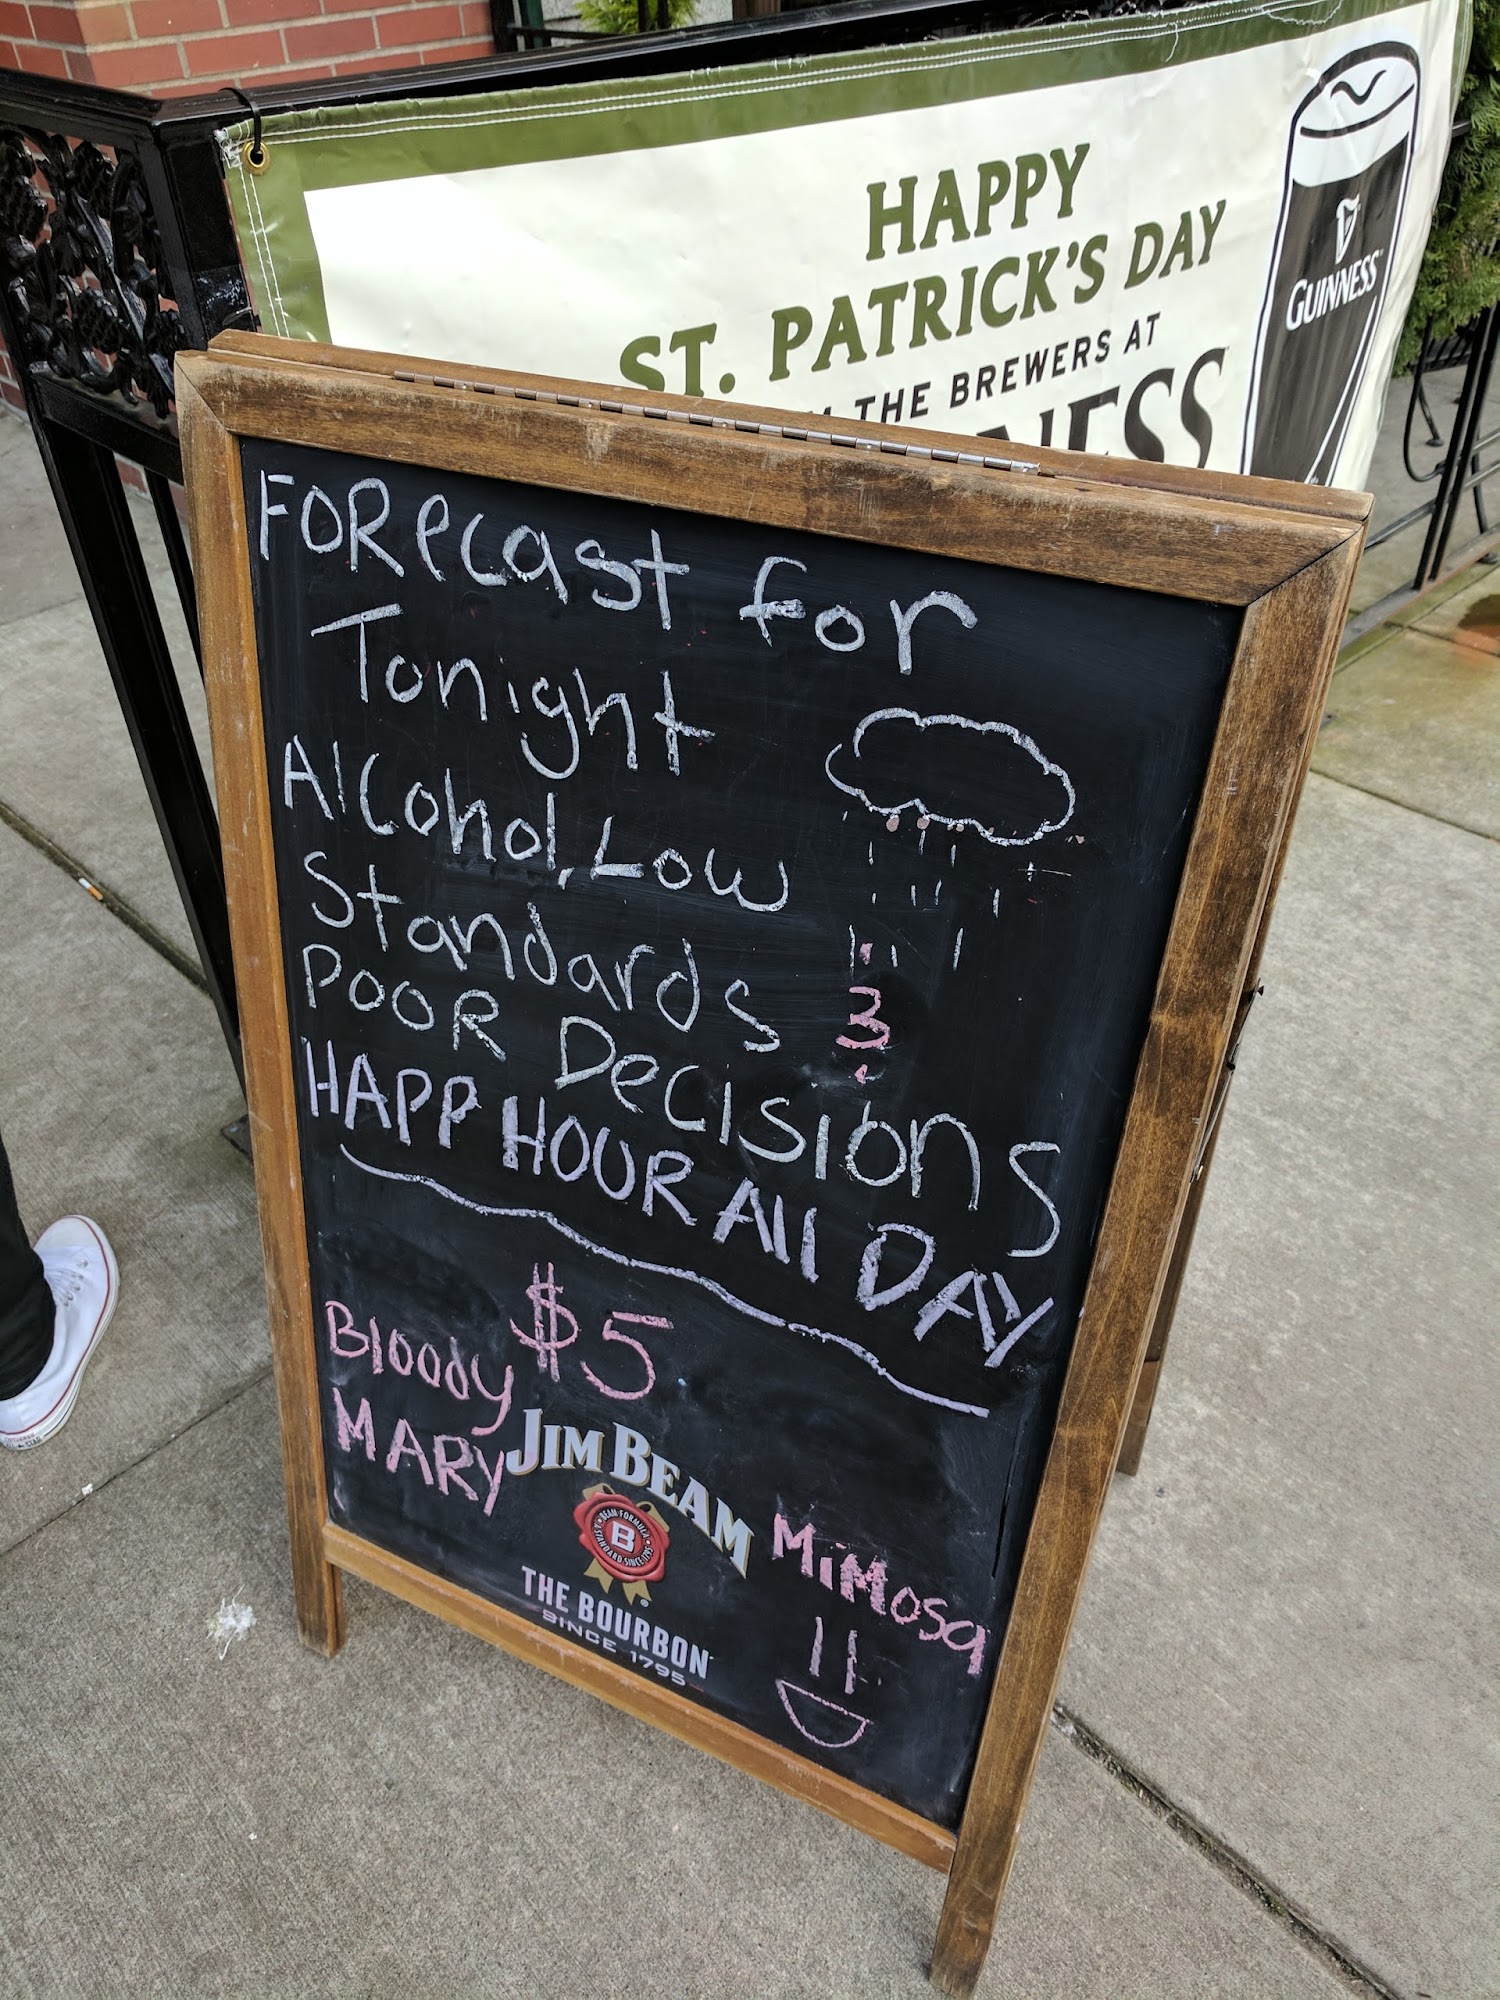 HAPPY
ST. PATRICK'S DAY
THE BREWERS AT
GUINNESS
FORecast for
Tonight
Alcohol, Low
Standards
POOR Decisions
HAPP HOUR All DAY
3
$5
Bloody
MARY
JIM BEAM
BEAM FORMULA
B
STANDARD SINCE 1795
THE BOURBON
SINCE 1795
MiMosa